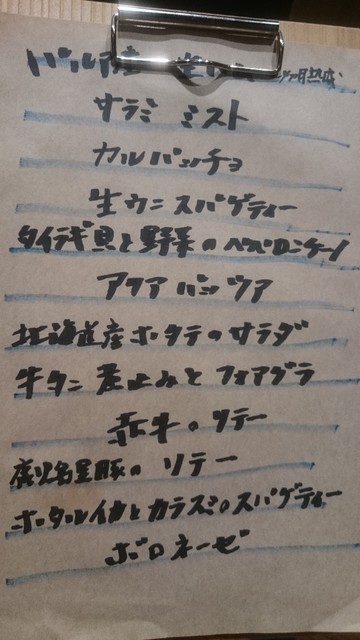 パルマ産 生ハム ヶ月熟成
サラミ ミスト
カルパッチョ
生ウニ スパゲティー
タイラギ貝と野菜のペペロンチーノ
アクア パッツア
北海道産ホタテのサラダ
牛タン 煮込みと フォアグラ
赤牛のソテー
鹿児島黒豚の ソテー
ホタルイカとカラスミのスパゲティー
ボロネーゼ